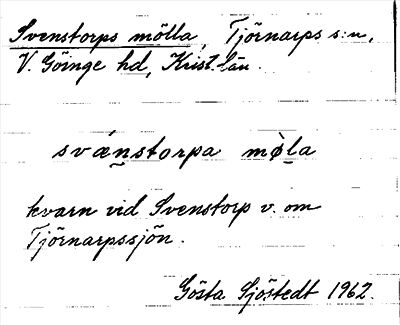 Svenstorps mölla, Tjörnarps s:n,
V. Göinge hd, Krist. län.
svǽnstorpa mø̀la
kvarn vid Svenstorp v. om
Tjörnarpssjön.
Gösta Sjöstedt 1962.